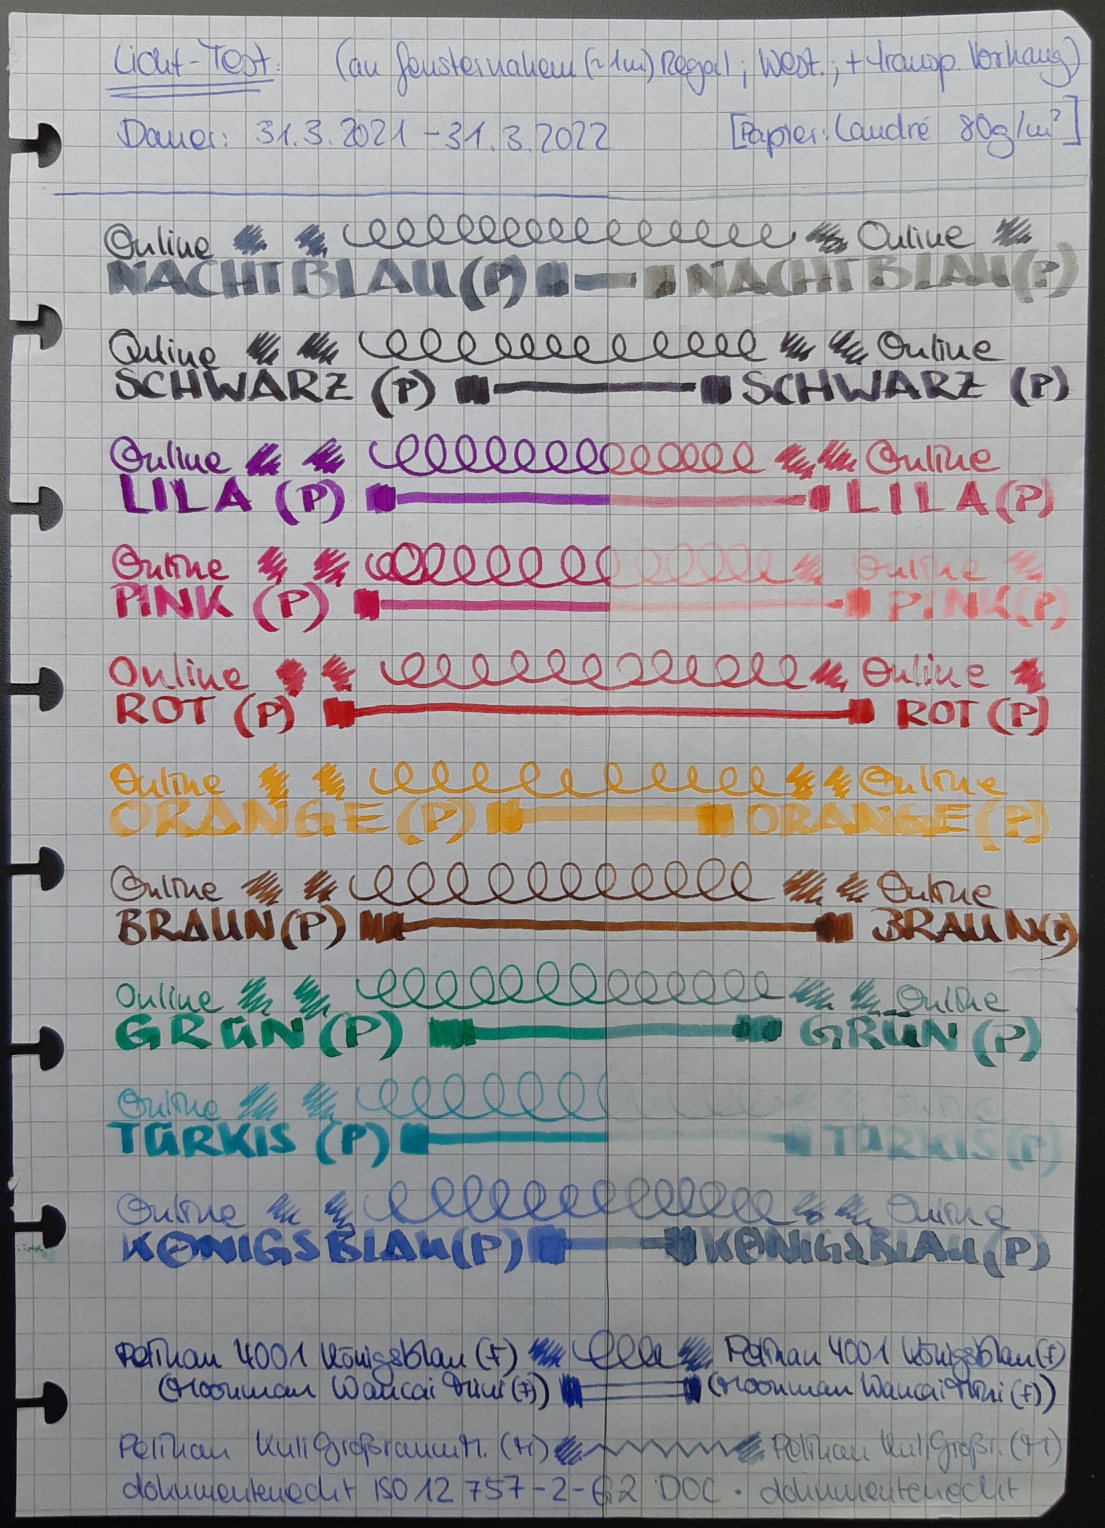 Licht-Test: (an fensternahem (~1m) Regal; West.; + transp. Vorhang)
Dauer: 31.3.2021 - 31.3.2022 [Papier: Landré 80g/m²]
Online Online
NACHTBLAU (P) NACHTBLAU (P)
Online Online
SCHWARZ (P) SCHWARZ (P)
Online Online
LILA (P) LILA (P)
Online Online
PINK (P) PINK (P)
Online Online
ROT (P) ROT (P)
Online Online
ORANGE (P) ORANGE (P)
Online Online
BRAUN (P) BRAUN (P)
Online Online
GRÜN (P) GRÜN (P)
Online Online
TÜRKIS (P) TÜRKIS (P)
Online Online
KÖNIGSBLAU (P) KÖNIGSBLAU (P)
Pelikan 4001 Königsblau (F) Pelikan 4001 Königsblau (F)
(Moonman Wancai Mini (F)) (Moonman Wancai Mini (F))
Pelikan Kuli Großraumm. (M) Pelikan Kuli Großr. (M)
dokumentenecht ISO 12 757-2-G2 DOC · dokumentenecht